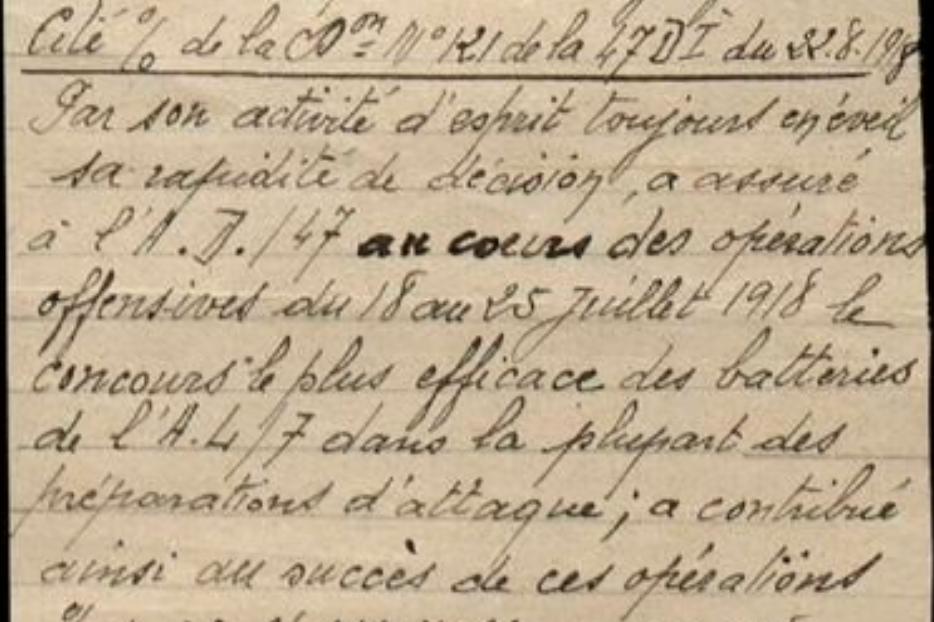 Cité % de la Don N° 121 de la 47 D I du 22.8.1918
Par son activité d'esprit toujours en éveil
sa rapidité de décision, a assuré
à l'A.D./47 au cours des opérations
offensives du 18 au 25 Juillet 1918 le
concours le plus efficace des batteries
de l'A.L/7 dans la plupart des
préparations d'attaque; a contribué
ainsi au succès de ces opérations